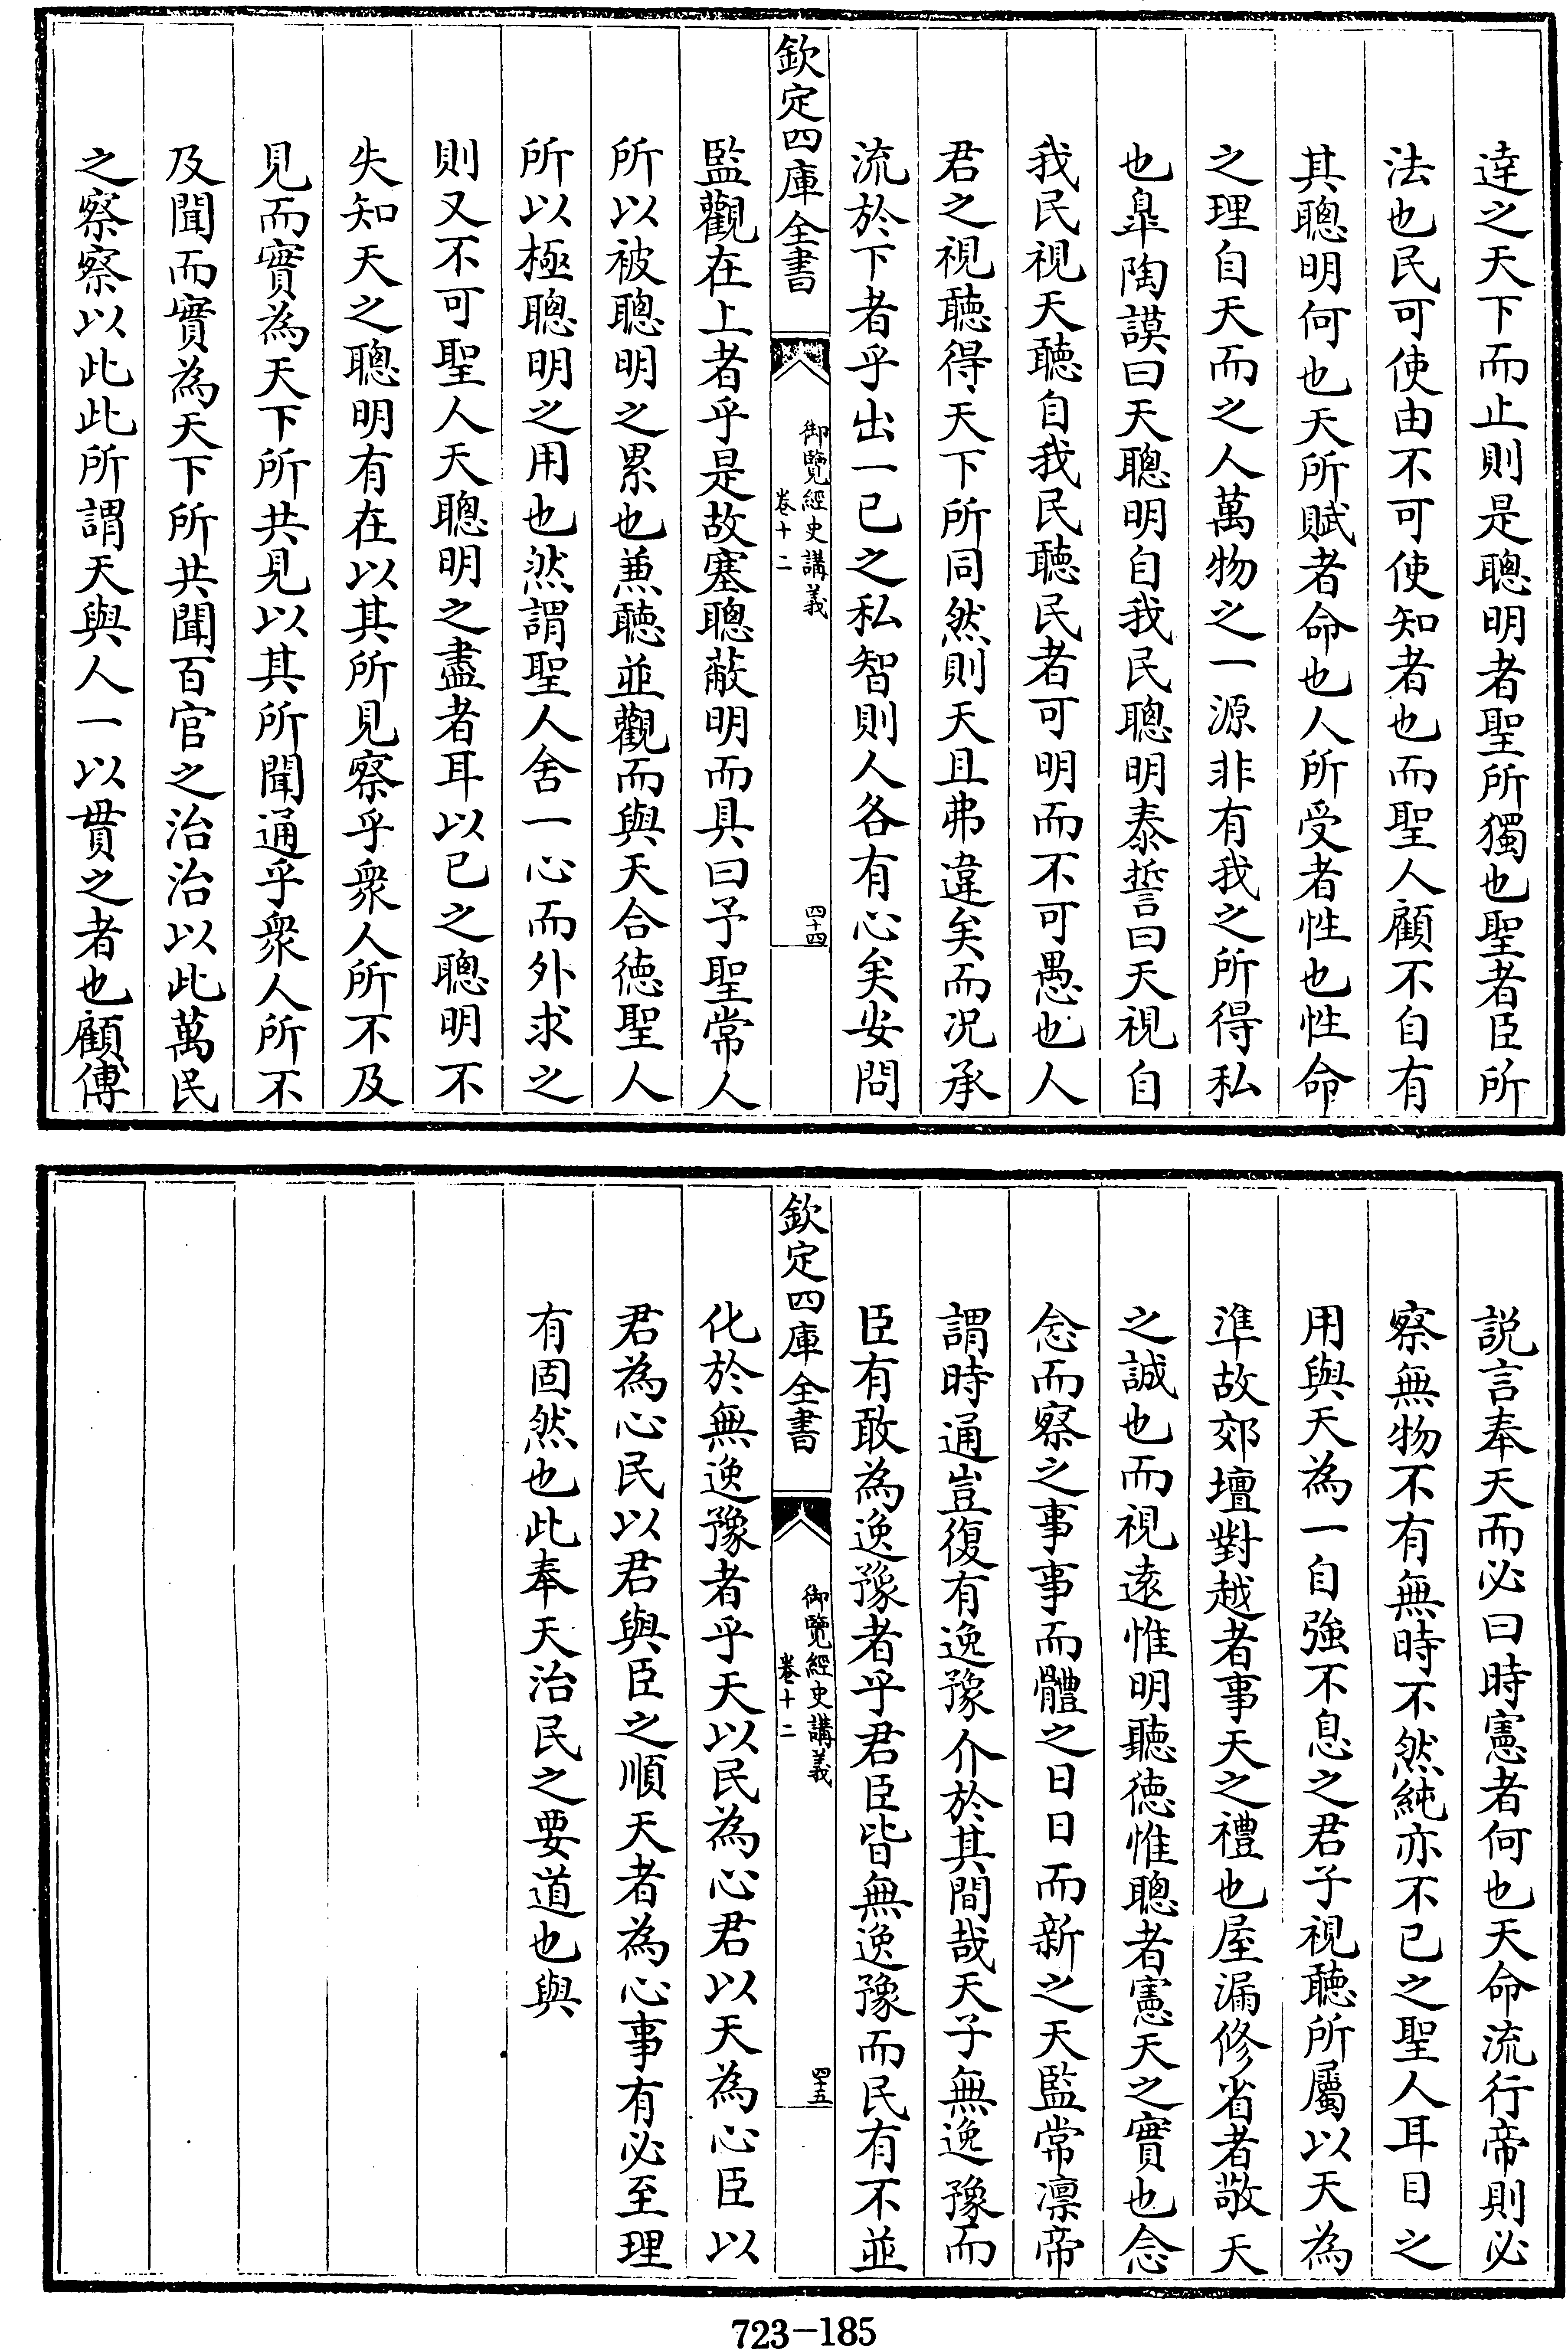 逹之天下而止則是聰明者聖所獨也聖者臣所
法也民可使由不可使知者也而聖人顧不自有
其聰明何也天所賦者命也人所受者性也性命
之理自天而之人萬物之一源非有我之所得私
也臯陶謨曰天聰明自我民聰明泰誓曰天視自
我民視天聽自我民聽民者可明而不可愚也人
君之視聽得天下所同然則天且弗違矣而况承
流於下者乎出一已之私智則人各有心矣安問
欽定四庫全書
御覽經史講義
卷十二
四十四
監觀在上者乎是故塞聰蔽明而具曰予聖常人
所以被聰明之累也兼聽並觀而與天合徳聖人
所以極聰明之用也然謂聖人舍一心而外求之
則又不可聖人天聰明之盡者耳以已之聰明不
失知天之聰明有在以其所見察乎衆人所不及
見而實為天下所共見以其所聞通乎衆人所不
及聞而實為天下所共聞百官之治治以此萬民
之察察以此此所謂天與人一以貫之者也顧傅
説言奉天而必曰時憲者何也天命流行帝則必
察無物不有無時不然純亦不已之聖人耳目之
用與天為一自強不息之君子視聽所屬以天為
準故郊壇對越者事天之禮也屋漏修省者敬天
之誠也而視逺惟明聽徳惟聰者憲天之實也念
念而察之事事而體之日日而新之天監常凛帝
謂時通豈復有逸豫介於其間哉天子無逸豫而
臣有敢為逸豫者乎君臣皆無逸豫而民有不並
欽定四庫全書
御覽經史講義
卷十二
四十五
化於無逸豫者乎天以民為心君以天為心臣以
君為心民以君與臣之順天者為心事有必至理
有固然也此奉天治民之要道也與
723-185